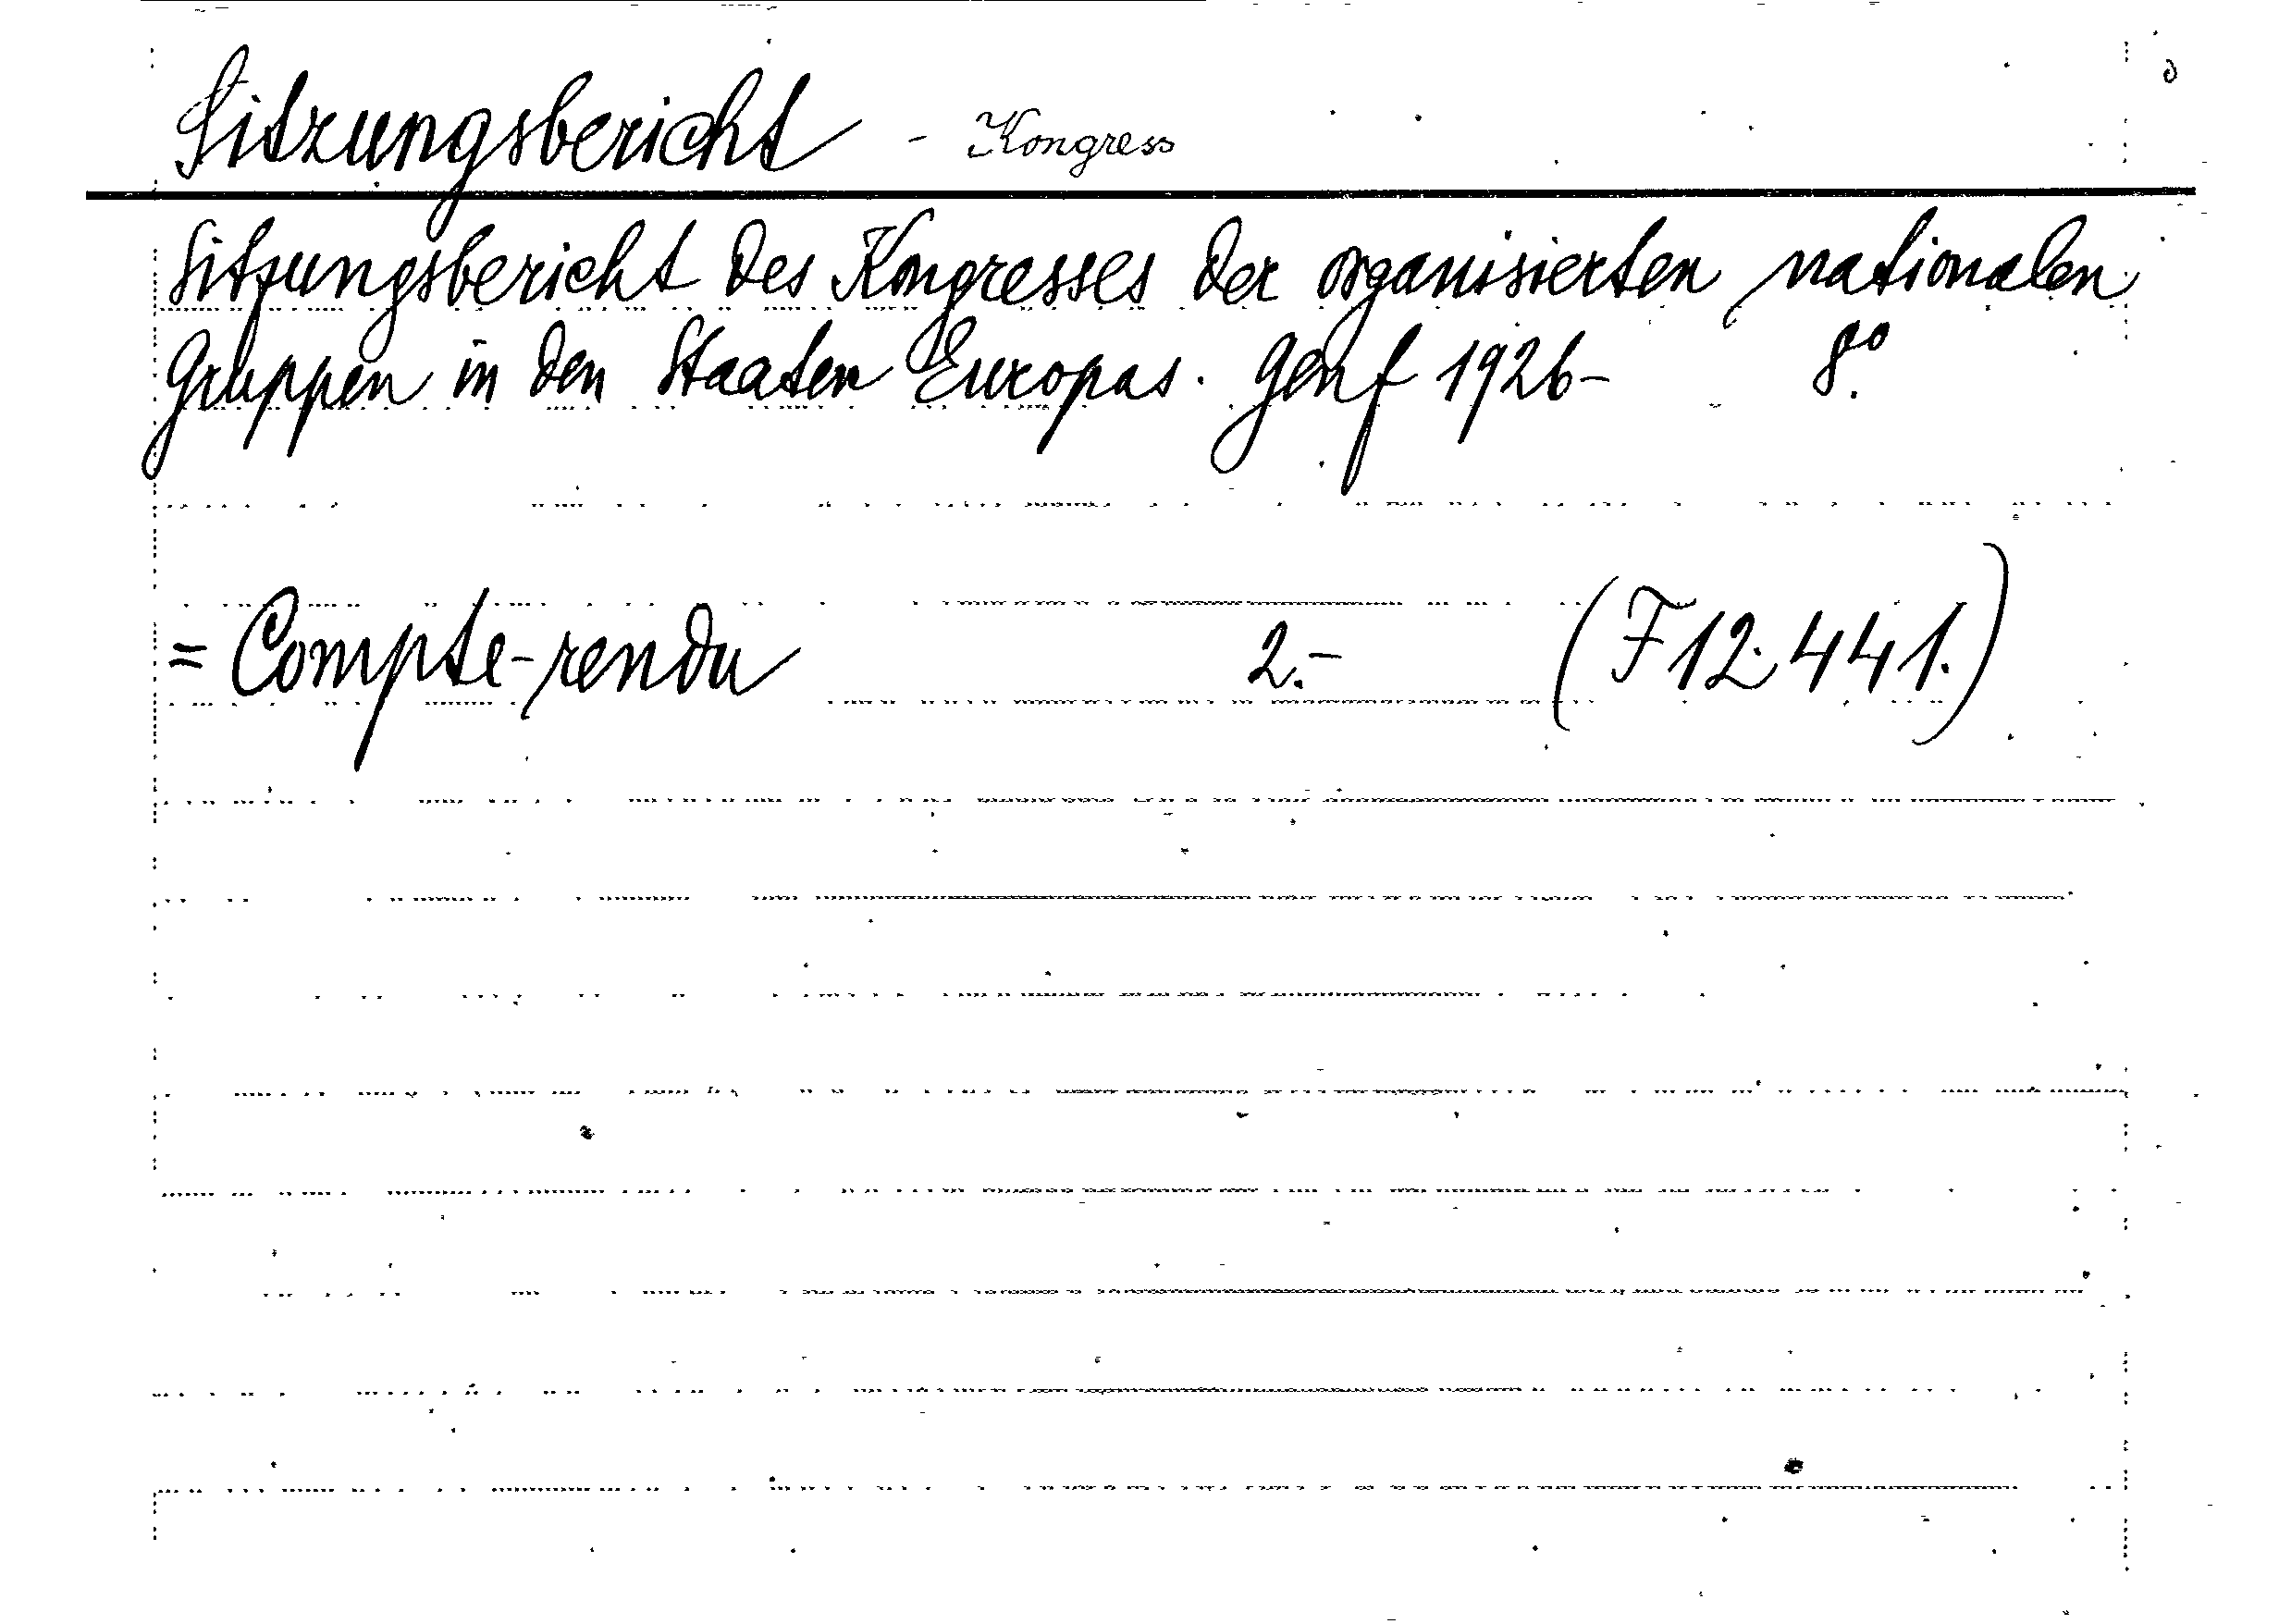 Sitzungsbericht - Kongress
Sitzungsbericht des Kongresses der organisierten nationalen
Gruppen in den Staaten Europas. Genf 1926- 8°.
= Compte-rendu 2.- (F 12.441.)